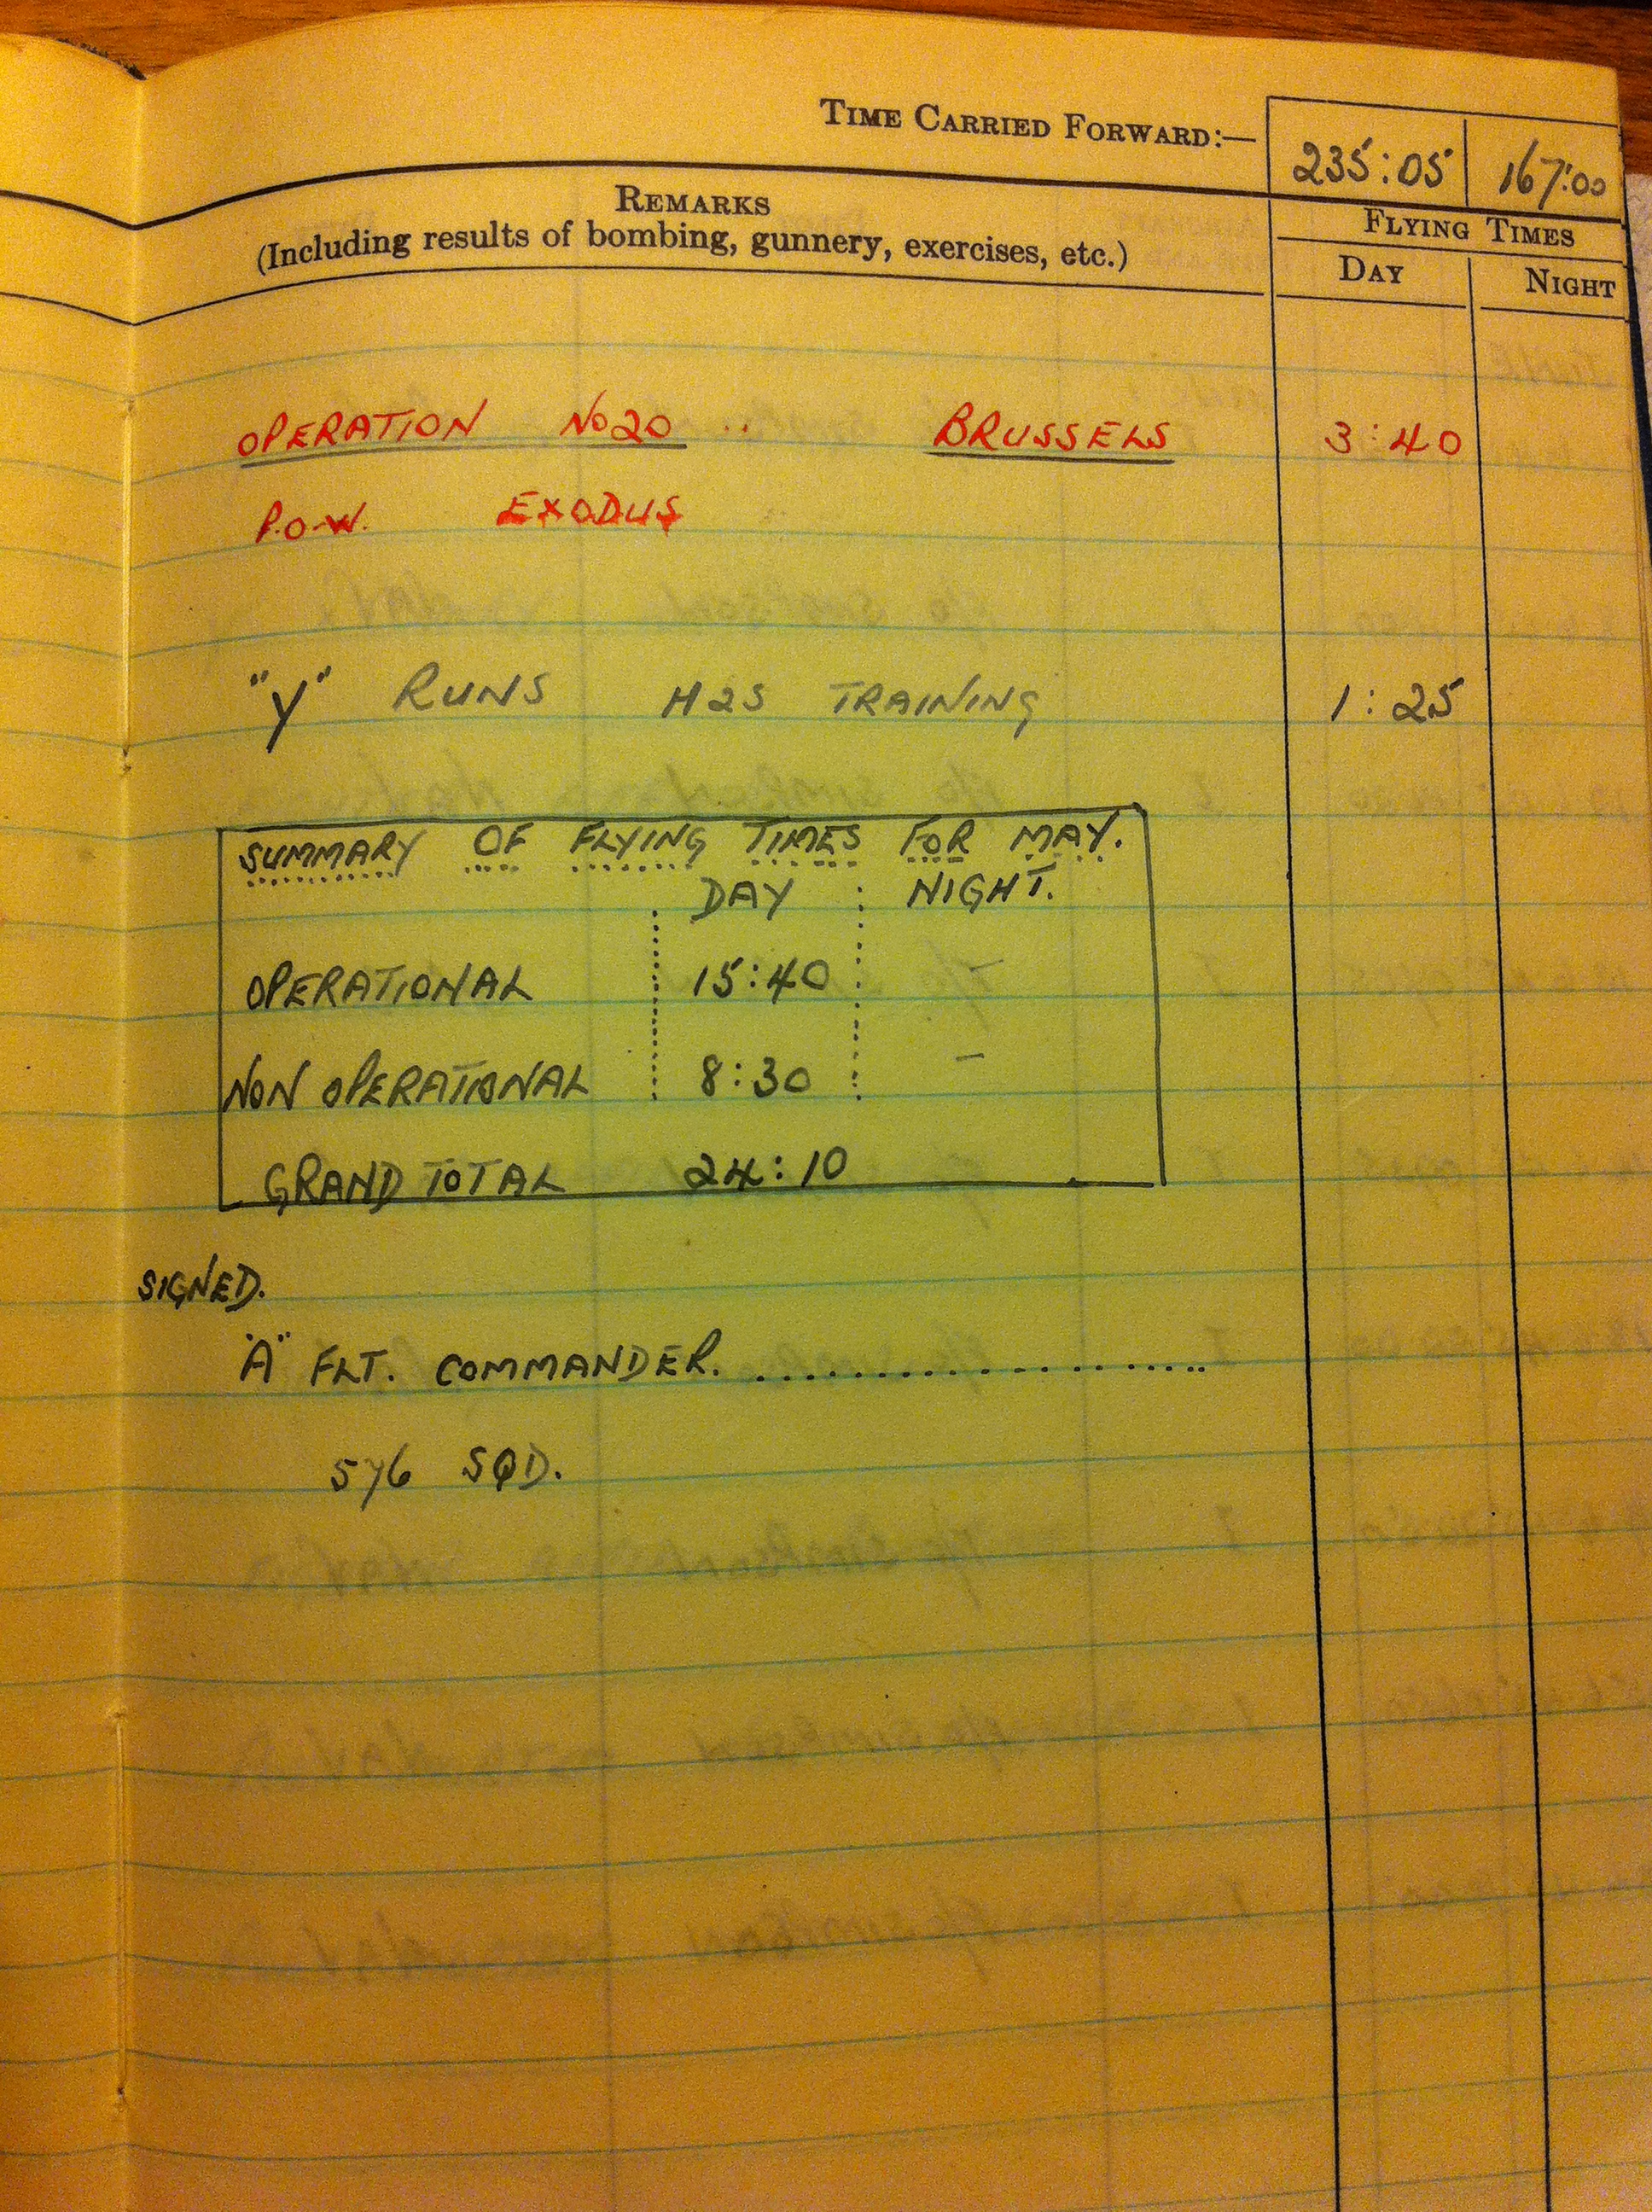 TIME CARRIED FORWARD:— 235:05 167:00
REMARKS
(Including results of bombing, gunnery, exercises, etc.)
FLYING TIMES
DAY NIGHT
OPERATION No 20 .. BRUSSELS 3:40
P.O.W. EXODUS
"Y" RUNS H2S TRAINING 1:25
SUMMARY OF FLYING TIMES FOR MAY.
DAY : NIGHT.
OPERATIONAL 15:40 -
NON OPERATIONAL 8:30 -
GRAND TOTAL 24:10
SIGNED.
"A" FLT. COMMANDER. ....................
576 SQD.